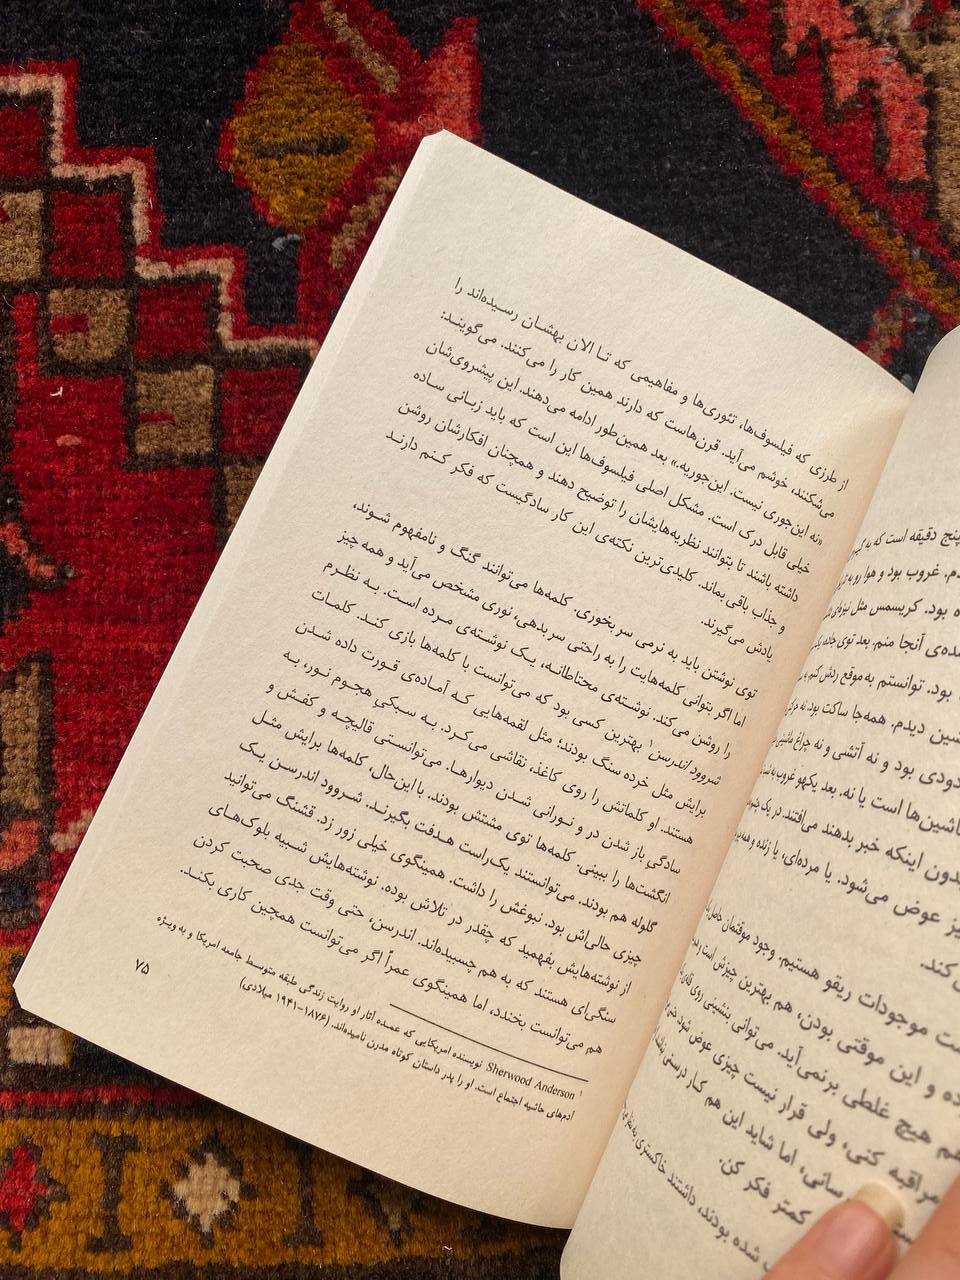 از طرزی که فیلسوف‌ها، تئوری‌ها و مفاهیمی که تا الان بهشان رسیده‌اند را
می‌شکنند، خوشم می‌آید. قرن‌هاست که دارند همین کار را می‌کنند. می‌گویند:
«نه این‌جوری نیست. این‌جوریه.» بعد همین‌طور ادامه می‌دهند. این پیشروی‌شان
خیلی قابل درک است. مشکل اصلی فیلسوف‌ها این است که باید زبانی ساده
داشته باشند تا بتوانند نظریه‌هایشان را توضیح دهند و همچنان افکارشان روشن
و جذاب باقی بماند. کلیدی‌ترین نکته‌ی این کار سادگیست که فکر کنم دارند
یادش می‌گیرند.
توی نوشتن باید به نرمی سر بخوری. کلمه‌ها می‌توانند گنگ و نامفهوم شوند،
اما اگر بتوانی کلمه‌هایت را به راحتی سر بدهی، نوری مشخص می‌آید و همه چیز
را روشن می کند. نوشته‌ی محتاطانه، یک نوشته‌ی مرده است. به نظرم
شروود اندرسن۱ بهترین کسی بود که می‌توانست با کلمه‌ها بازی کند. کلمات
برایش مثل خرده سنگ بودند؛ مثل لقمه‌هایی که آماده‌ی قورت داده شدن
هستند. او کلماتش را روی کاغذ، نقاشی می‌کرد. به سبکیِ هجوم نور، به
سادگی باز شدن در و نورانی شدن دیوارها. می‌توانستی قالیچه و کفش و
انگشت‌ها را ببینی. کلمه‌ها توی مشتش بودند. با این‌حال، کلمه‌ها برایش مثل
گلوله هم بودند. می‌توانستند یک‌راست هدفت بگیرند. شروود اندرسن یک
چیزی حالی‌اش بود. نبوغش را داشت. همینگوی خیلی زور زد. قشنگ می‌توانید
از نوشته‌هایش بفهمید که چقدر در تلاش بوده. نوشته‌هایش شبیه بلوک‌های
سنگی‌ای هستند که به هم چسبیده‌اند. اندرسن، حتی وقت جدی صحبت کردن
هم می‌توانست بخندد، اما همینگوی عمراً اگر می‌توانست همچین کاری بکند.
۱ Sherwood Anderson نویسنده امریکایی که عمده‌ی آثار او روایت زندگی طبقه متوسط جامعه امریکا و به ویژه
آدم‌های حاشیه اجتماع است. او را پدر داستان کوتاه مدرن نامیده‌اند. (۱۸۷۶-۱۹۴۱ میلادی)
۷۵
پنج دقیقه است که به
غروب بود و هوا رو به
بود. کریسمس مثل
آنجا منم. بعد توی
بود. توانستم به‌موقع
دیدم. همه‌جا ساکت بود.
دودی بود و نه آتشی و نه چراغ
است یا نه. بعد یکهو غروب
بدون اینکه خبر بدهند می‌افتند. در یک
عوض می‌شود. یا مرده‌ای، یا زنده و
کند.
موجودات ریقو هستیم. وجود موقتمان
و این موقتی بودن، هم بهترین چیزش است
هم هیچ غلطی برنمی‌آید. می‌توانی بنشینی روی
مراقبه کنی، ولی قرار نیست چیزی عوض شود
اما شاید این هم کار درستی
کمتر فکر کن.
شده بودند، داشتند خاکستری